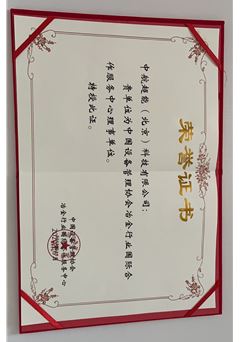 荣誉证书
中航超能（北京）科技有限公司：
贵单位为中国设备管理协会冶金行业国际合
作服务中心理事单位。
特授此证。
中国设备管理协会
冶金行业国际合作服务中心